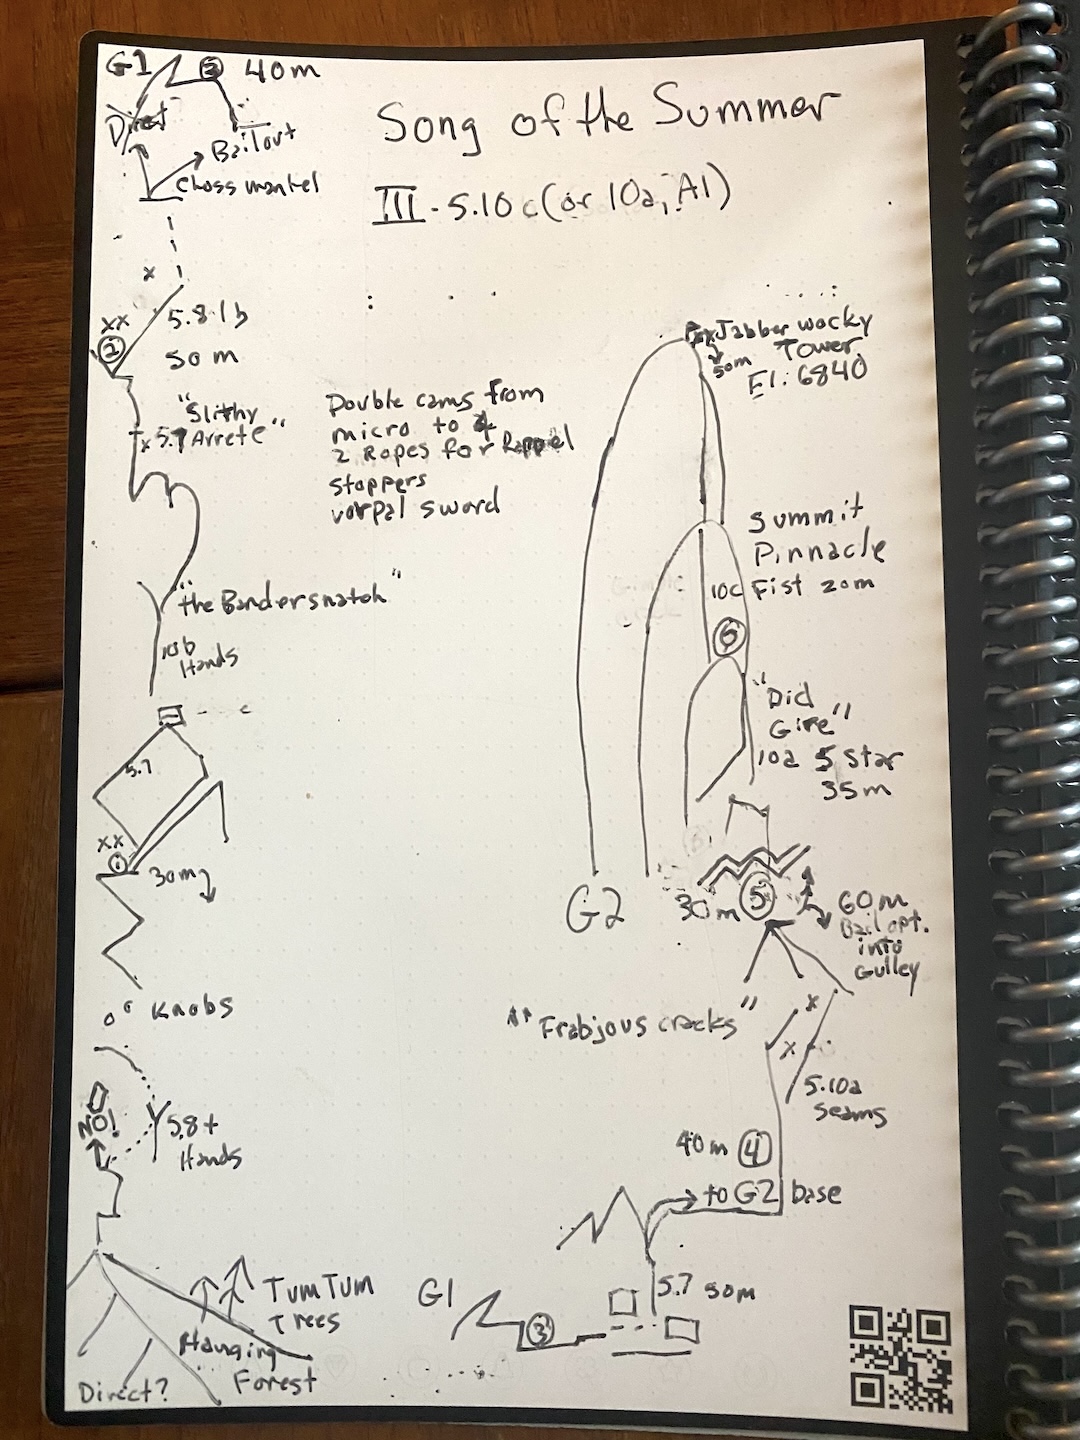 G1
3
40m
Direct
Bailout
Choss mantel
Song of the Summer
III - 5.10c (or 10a, A1)
x
xx
2
5.8 lb
50m
"Slithy
Arrete"
x 5.7
Double cams from
micro to 4
2 Ropes for Rappel
stoppers
vorpal sword
"the Bandersnatch"
10b
Hands
5.7
xx
1
30m
Knobs
NO!
5.8+
Hands
Tum Tum
Trees
Hanging
Forest
Direct?
Jabberwocky
Tower
50m
El: 6840
Summit
Pinnacle
10c Fist 20m
6
"Did
Gire"
10a 5 star
35m
G2
30m
5
60m
Bail opt.
into
Gulley
"Frabjous cracks"
x
x
5.10a
seams
40m 4
to G2 base
5.7 50m
G1
3